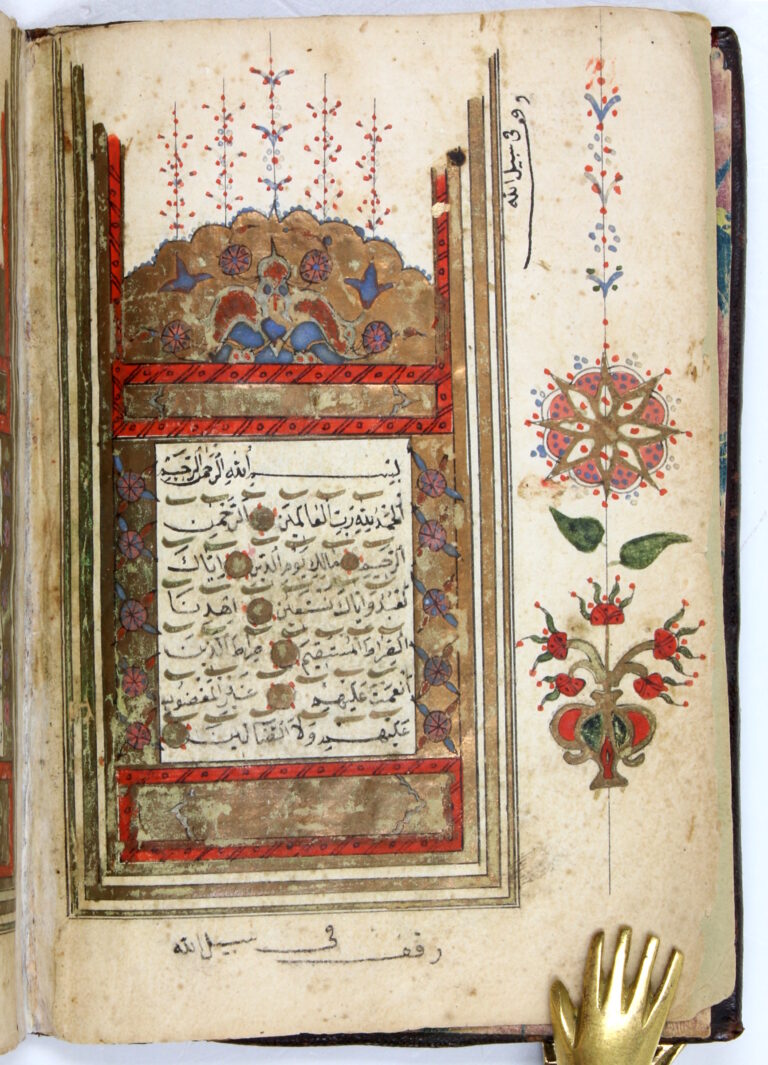 وقف في سبيل الله
بسم الله الرحمن الرحيم
الحمد لله رب العالمين الرحمن
الرحيم مالك يوم الدين اياك
نعبد واياك نستعين اهدنا
الصراط المستقيم صراط الذين
انعمت عليهم غير المغضوب
عليهم ولا الضالين
وقف في سبيل الله